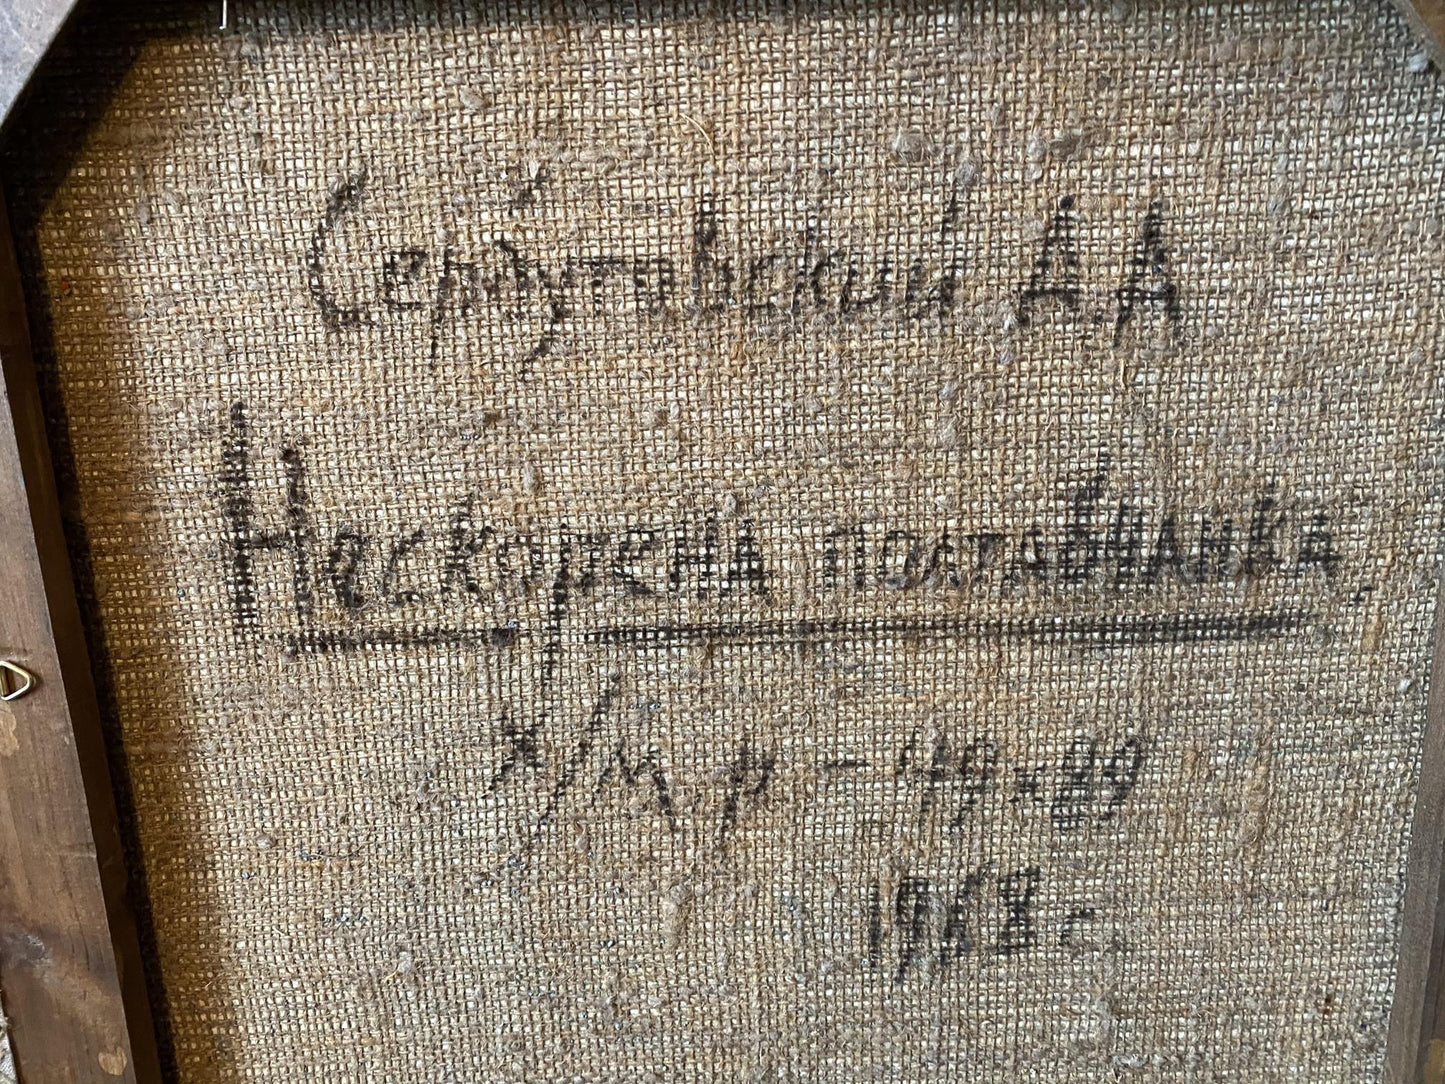 Сердутовский А.А
Нескорена полтавчанка
х/м р - 49×89
1968 г.